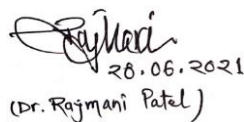 Rajmani
28.06.2021
(Dr. Rajmani Patel)